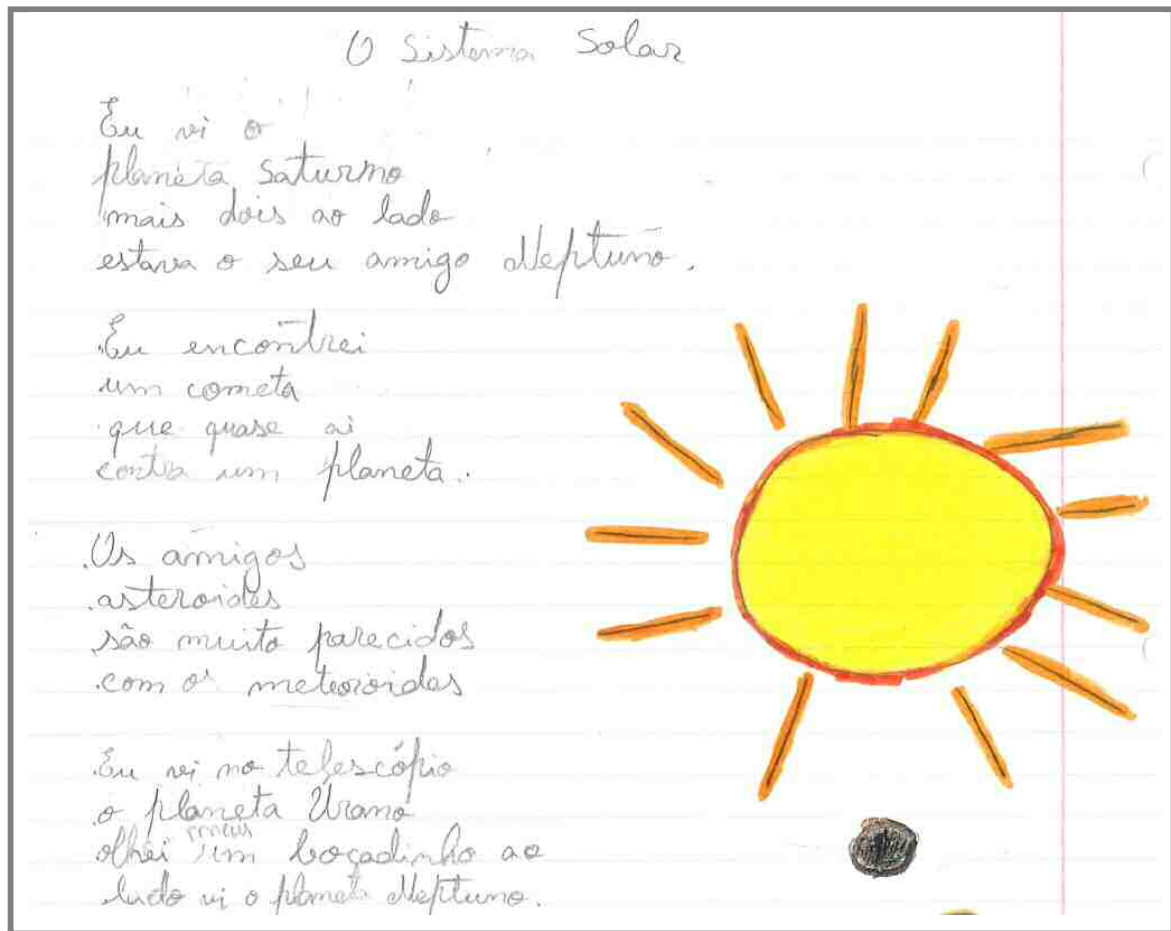 O Sistema Solar
Eu vi o
planeta saturno
mais dois ao lado
estava o seu amigo Neptuno.
Eu encontrei
um cometa
que quase ai
contra um planeta.
Os amigos
asteroides
são muito parecidos
com os meteoroides
Eu vi no telescópio
o planeta Úrano
olhei mais um bocadinho ao
lado vi o planeta Neptuno.